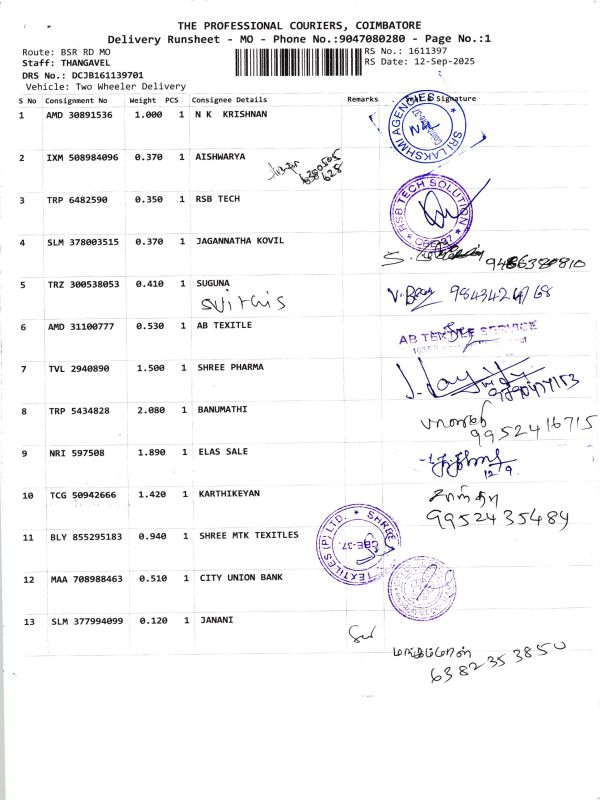 THE PROFESSIONAL COURIERS, COIMBATORE
Delivery Runsheet - MO - Phone No.:9047080280 - Page No.:1
Route: BSR RD MO
RS No.: 1611397
Staff: THANGAVEL
RS Date: 12-Sep-2025
DRS No.: DCJB161139701
Vehicle: Two Wheeler Delivery
S No Consignment No Weight PCS Consignee Details Remarks Signature
1 AMD 30891536 1.000 1 N K KRISHNAN
SRI LAKSHMI AGENCIES
2 IXM 508984096 0.370 1 AISHWARYA
3 TRP 6482590 0.350 1 RSB TECH
RSB TECH SOLUTION
4 SLM 378003515 0.370 1 JAGANNATHA KOVIL
5 TRZ 300538053 0.410 1 SUGUNA
9843424768
6 AMD 31100777 0.530 1 AB TEXITLE
AB SERVICE
7 TVL 2940890 1.500 1 SHREE PHARMA
8 TRP 5434828 2.080 1 BANUMATHI
பானுமதி
9952416715
9 NRI 597508 1.890 1 ELAS SALE
12/9
10 TCG 50942666 1.420 1 KARTHIKEYAN
சாந்தா
9952435484
11 BLY 855295183 0.940 1 SHREE MTK TEXITLES
SHREE TEXTILES (P) LTD.
CBE-37.
12 MAA 708988463 0.510 1 CITY UNION BANK
13 SLM 377994099 0.120 1 JANANI
6382353850